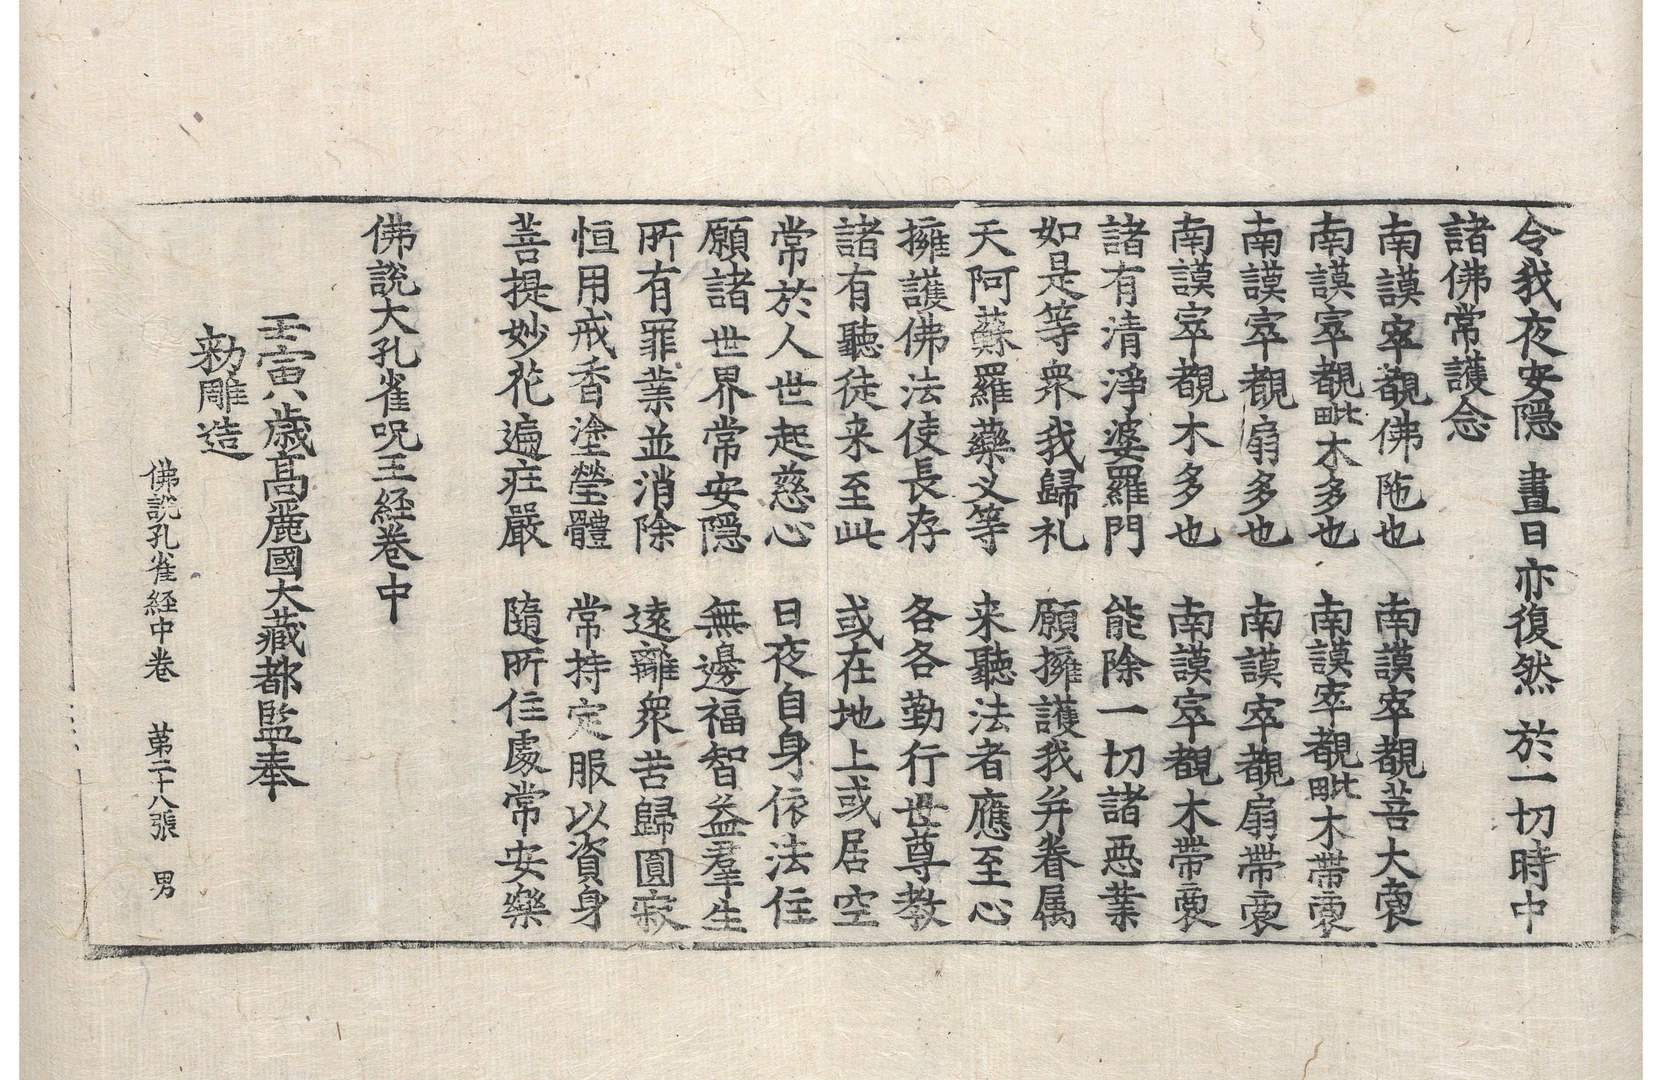 令我夜安隱 晝日亦復然 於一切時中
諸佛常護念
南謨窣覩佛陁也 南謨窣覩菩大裔
南謨窣覩毗木多也 南謨窣覩毗木帶裔
南謨窣覩扇多也 南謨窣覩扇帶裔
南謨窣覩木多也 南謨窣覩木帶裔
諸有清淨婆羅門 能除一切諸惡業
如是等衆我歸礼 願擁護我并眷属
天阿蘇羅藥叉等 来聽法者應至心
擁護佛法使長存 各各勤行世尊教
諸有聽徒来至此 或在地上或居空
常於人世起慈心 日夜自身依法住
願諸世界常安隱 無邊福智益羣生
所有罪業並消除 遠離衆苦歸圓寂
恒用戒香塗瑩體 常持定服以資身
菩提妙花遍庄嚴 隨所住處常安樂
佛說大孔雀呪王経卷中
壬寅歲高麗國大藏都監奉
勑雕造
佛說孔雀経中卷 第二十八張 男